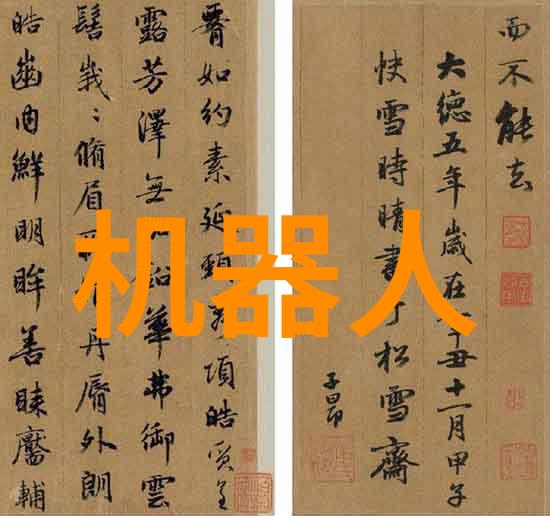 如約素延頸項皓質呈
露芳澤無鉛華弗御雲
髻峩〻脩眉丹脣外朗
皓齒内鮮明眸善睞靨輔
而不能去
大德五年歲在丑十一月甲子
快雪時晴書于松雪齋
子昂
机器人